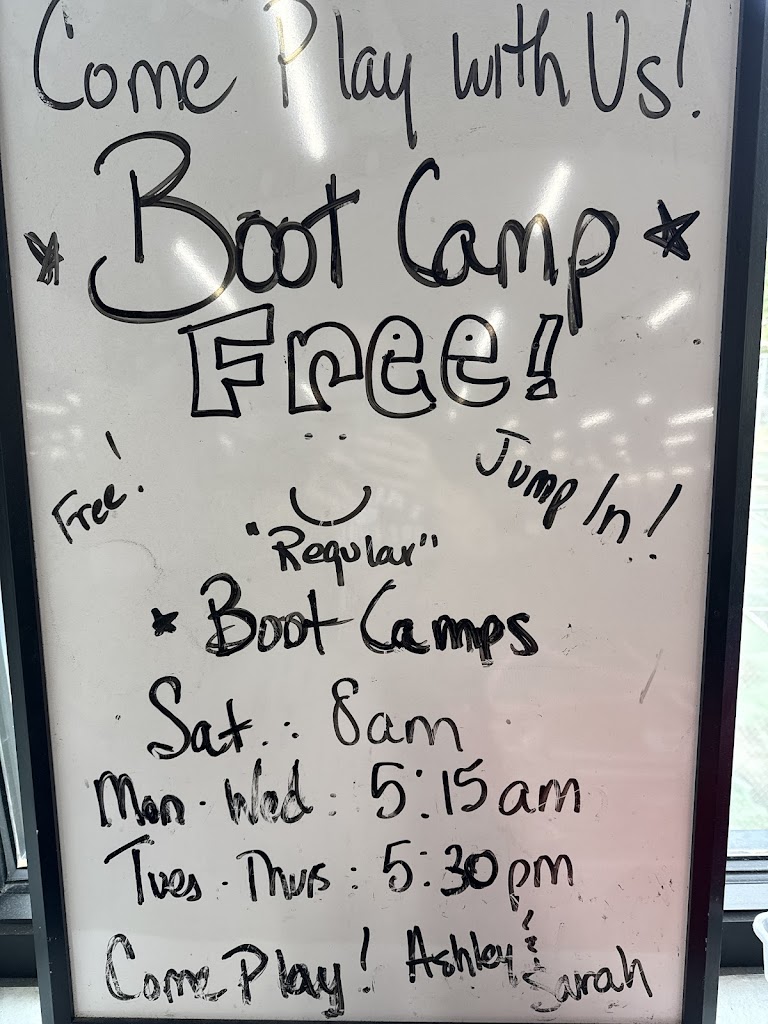 Come Play with Us!
Boot Camp
Free!
Free!
Jump In!
"Regular"
Boot Camps
Sat.: 8am
Mon. Wed: 5:15am
Tues. Thurs: 5:30pm
Come Play! Ashley &
Sarah